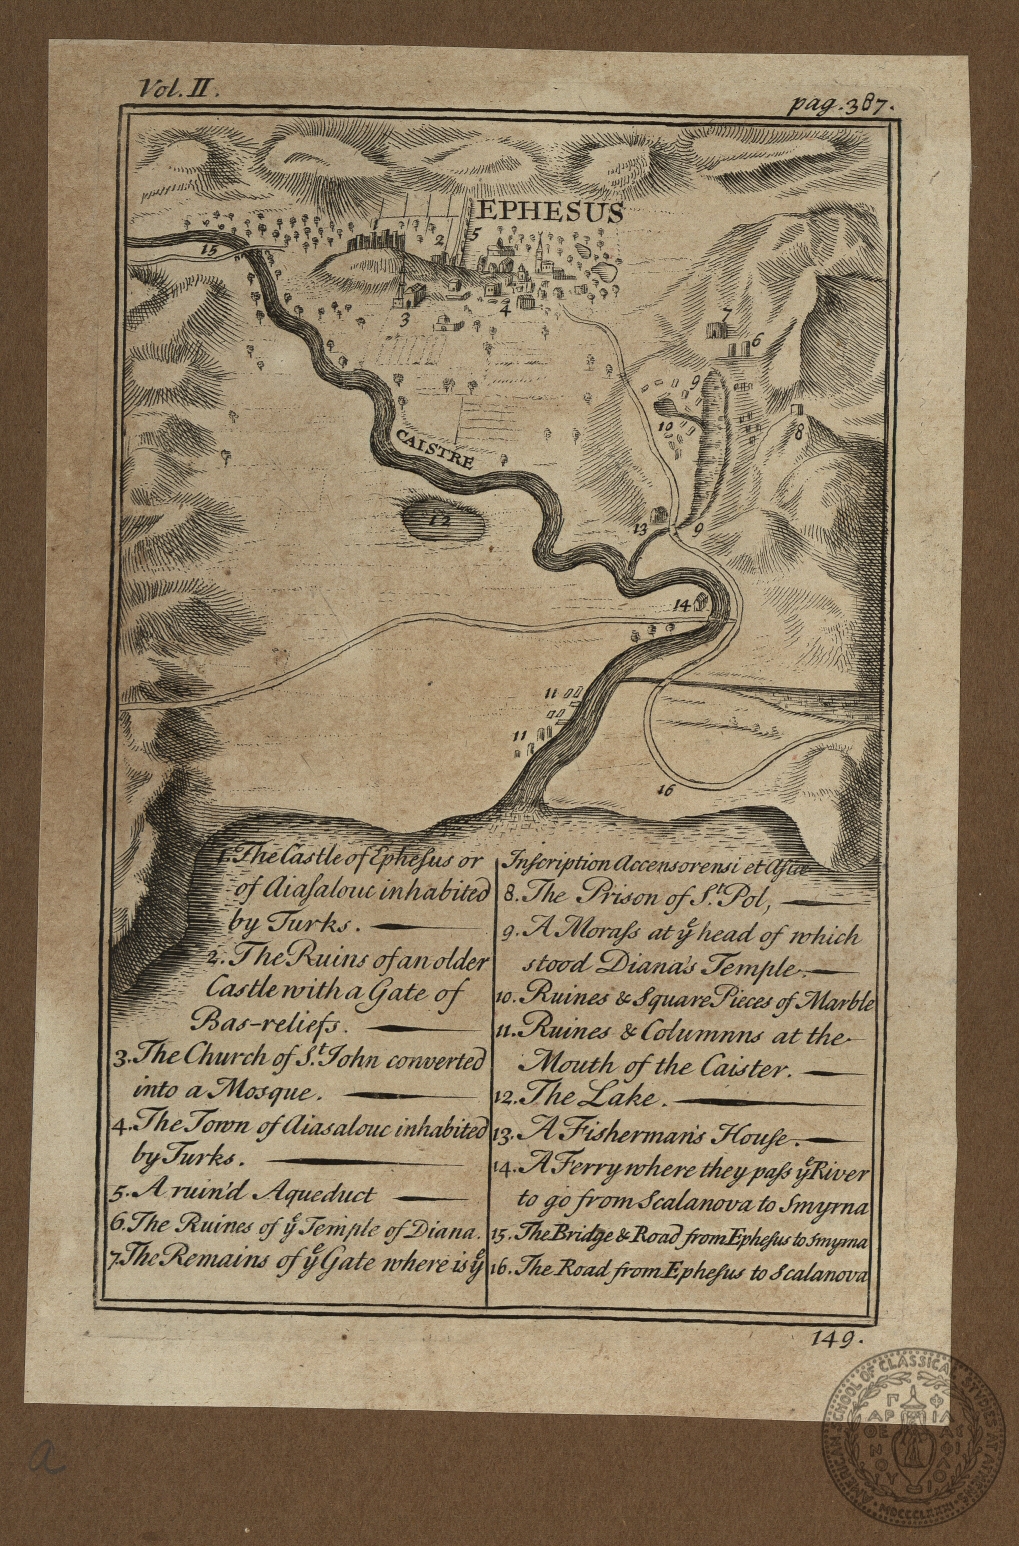 Vol. II.
pag. 387.
EPHESUS
2
5
15
3
4
7
6
9
10
8
CAISTRE
12
13
9
14
11
11
16
1. The Castle of Ephesus or
of Aiasalouc inhabited
by Turks.
2. The Ruins of an older
Castle with a Gate of
Bas-reliefs.
3. The Church of S.t John converted
into a Mosque.
4. The Town of Aiasalouc inhabited
by Turks.
5. A ruin'd Aqueduct
6. The Ruines of ye Temple of Diana.
7. The Remains of ye Gate where is ye
Inscription Accensorensi et Asiae
8. The Prison of S.t Pol,
9. A Morass at ye head of which
stood Diana's Temple.
10. Ruines & Square Pieces of Marble
11. Ruines & Columnns at the
Mouth of the Caister.
12. The Lake.
13. A Fisherman's House.
14. A Ferry where they pass ye River
to go from Scalanova to Smyrna
15. The Bridge & Road from Ephesus to Smyrna
16. The Road from Ephesus to Scalanova
149.
a
AMERICAN SCHOOL OF CLASSICAL STUDIES AT ATHENS
MDCCCLXXXI